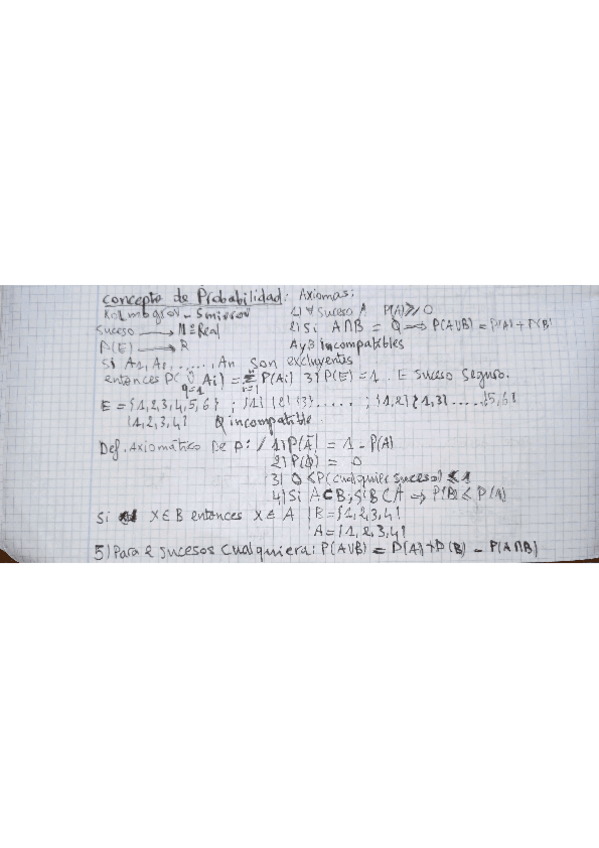 Concepto de Probabilidad: Axiomas:
Kolmogrov - Smirrov 1) ∀ suceso A P(A) ≥ 0
Suceso → Nº Real 2) Si A∩B = Ø ⇒ P(A∪B) = P(A) + P(B)
P(E) → R A y B incompatibles
Si A1, A2, ......, An son excluyentes
entonces P(∪ Ai) = Σ P(Ai) 3) P(E) = 1 . E suceso seguro.
E = {1,2,3,4,5,6} ; {1} {2} {3} ..... ; {1,2} {1,3} ..... {5,6}
{1,2,3,4} Ø incompatible
Def. Axiomático De P: / 1) P(Ā) = 1 - P(A)
2) P(Ø) = 0
3) 0 ≤ P(cualquier suceso) ≤ 1
4) Si A⊂B; Si B⊂A ⇒ P(B) ≤ P(A)
Si X∈B entonces X∈A | B = {1,2,3,4}
A = {1,2,3,4}
5) Para 2 sucesos cualquiera: P(A∪B) = P(A) + P(B) - P(A∩B)